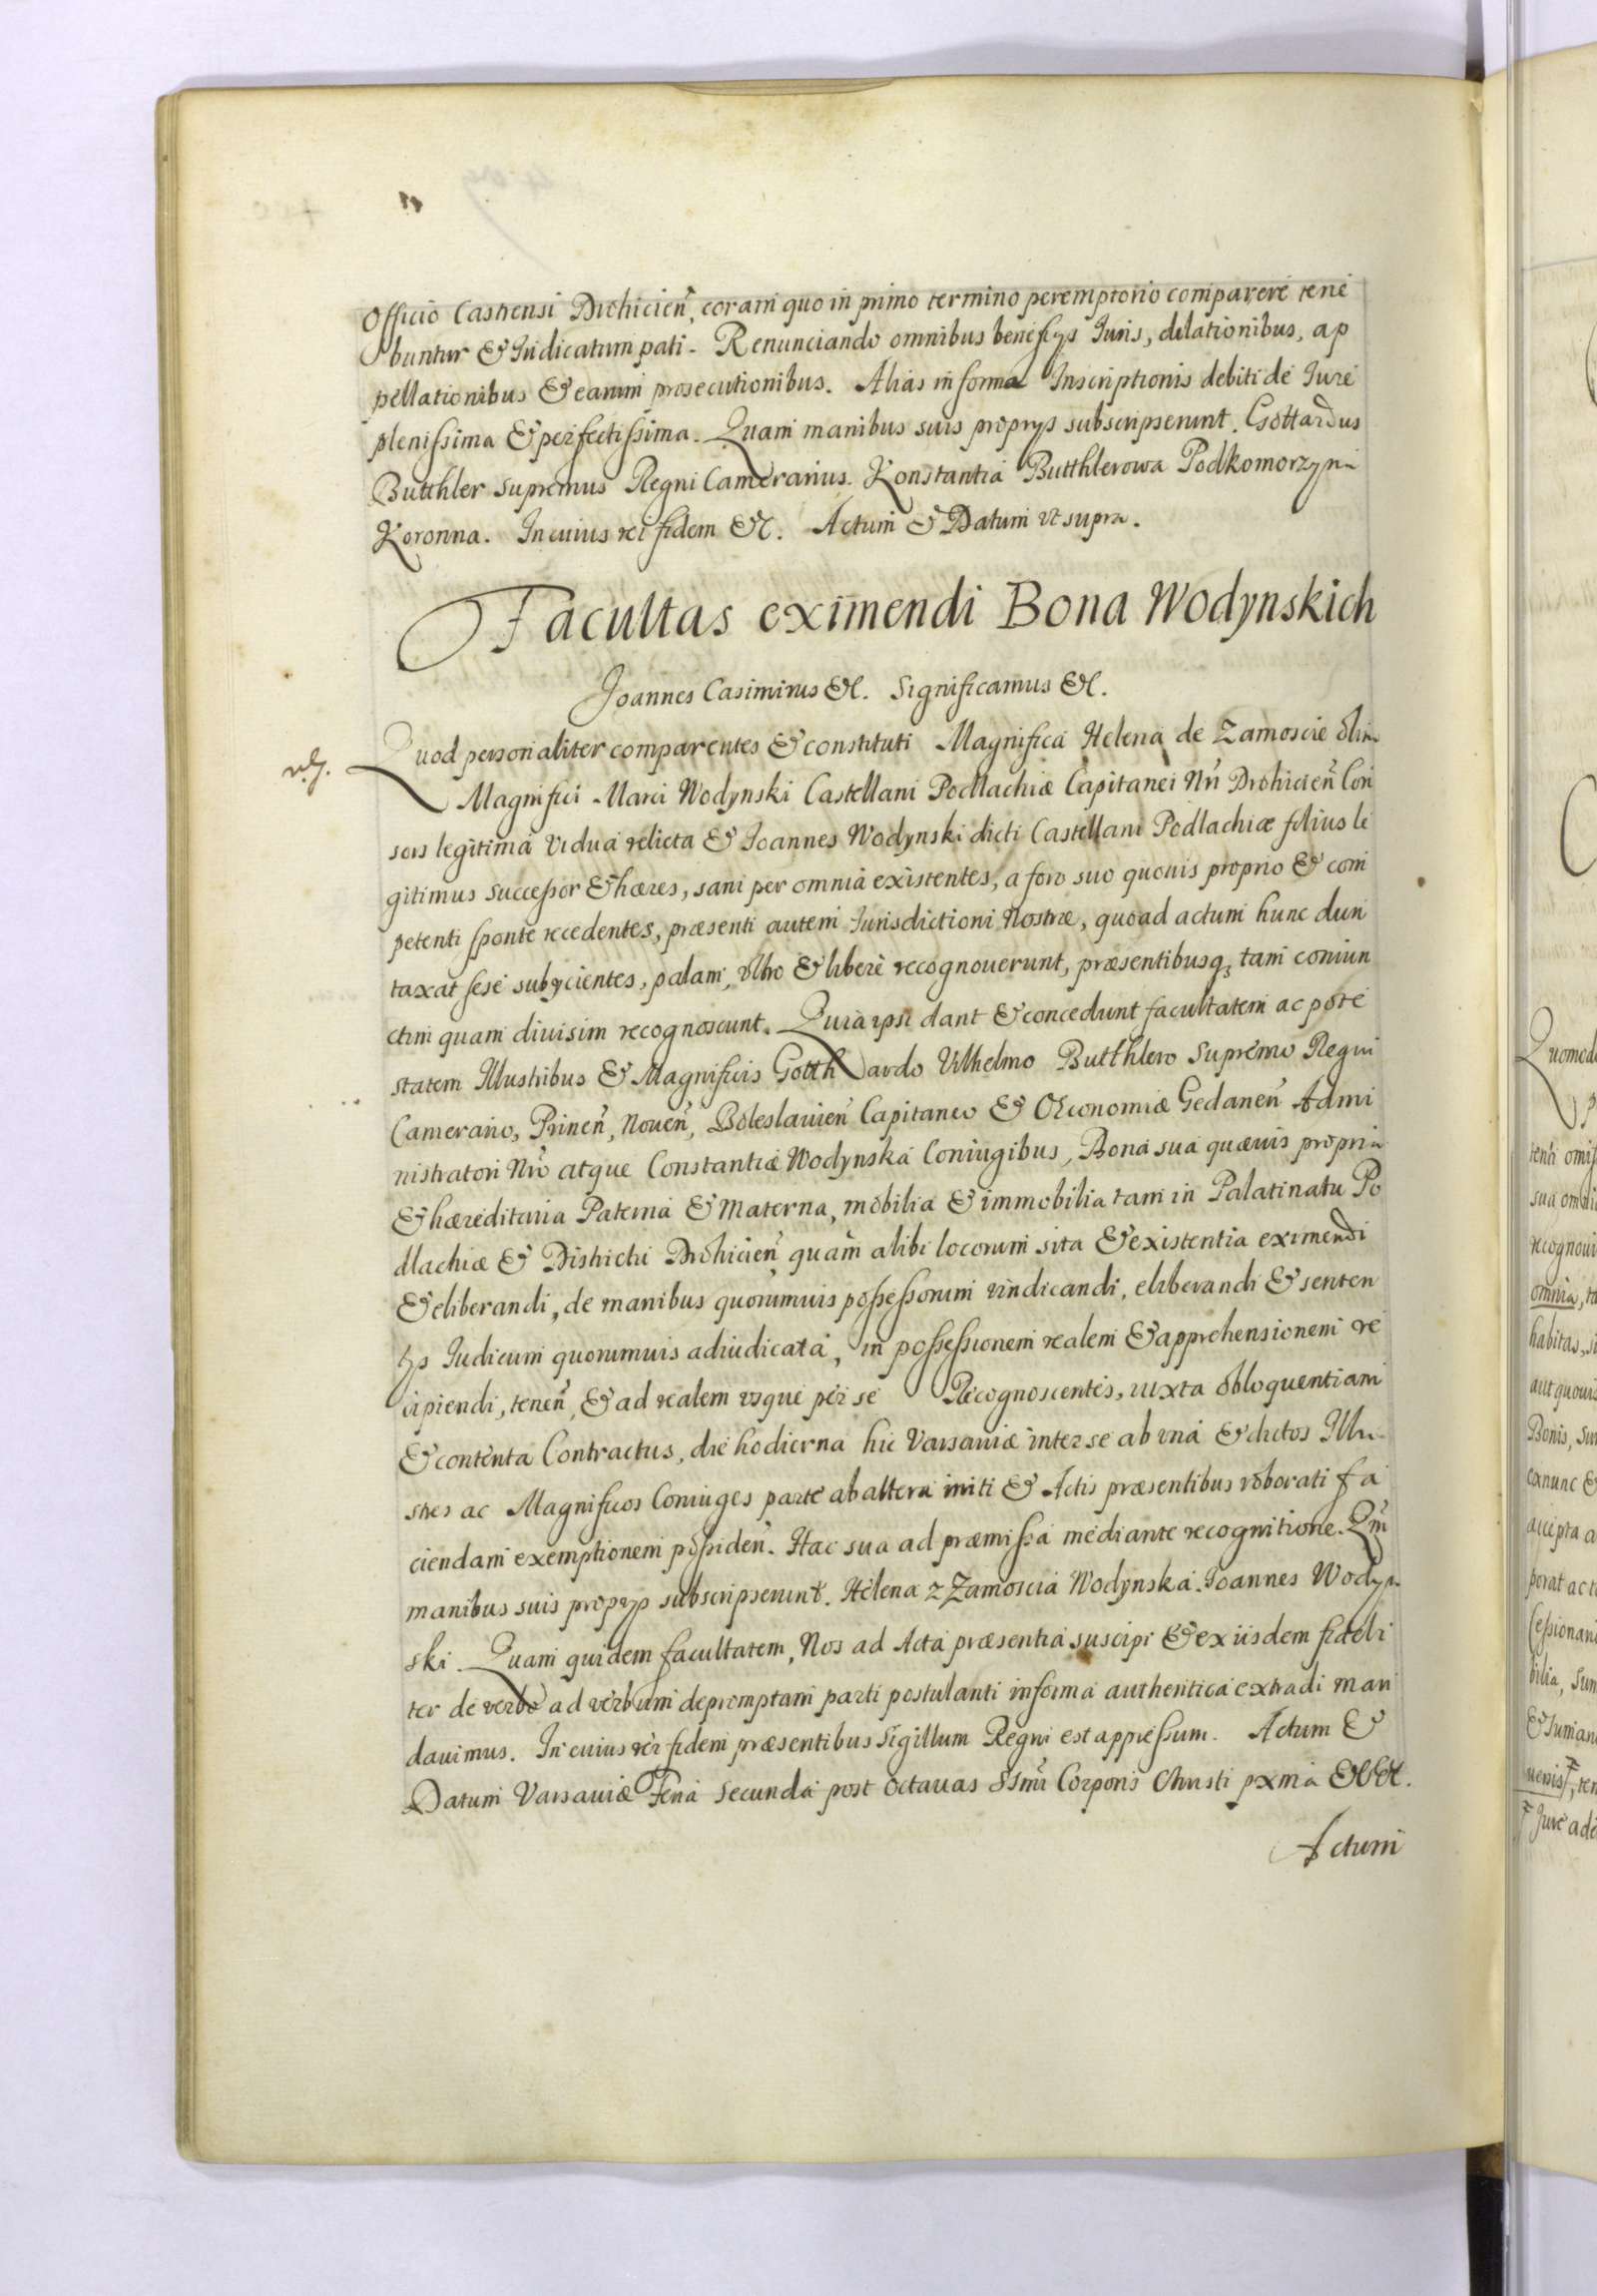 Officio Castrensi Drohicien̄, coram quo in primo termino peremptorio comparere tene
buntur & Iudicatum pati. Renunciando omnibus beneficÿs Iuris, dilationibus, ap
pellationibus & earum prosecutionibus. Alias in forma Inscriptionis debiti de Iure
plenissima & perfectissima. Quam manibus suis proprÿs subscripserunt. Gottardus
Butthler Supremus Regni Camerarius. Konstantia Butthlerowa Podkomorzyna
Koronna. In cuius rei fidem &c. Actum & Datum vt supra.
Facultas eximendi Bona Wodynskich
Joannes Casimirus &c. Significamus &c.
Quod personaliter comparentes & constituti Magnifica Helena de Zamoscie olim
Magnifici Marci Wodynski Castellani Podlachiæ Capitanei Nr̄i Drohicien̄ Con
sors legitima vidua relicta & Joannes Wodynski dicti Castellani Podlachiæ filius le
gitimus successor & hæres, sani per omnia existentes, a foro suo quouis proprio & com
petenti sponte recedentes, præsenti autem Iurisdictioni Nostræ, quoad actum hunc dun
taxat sese subÿcientes, palam, vltro & libere recognouerunt, præsentibusq3 tam coniun
ctim quam diuisim recognoscunt. Quia ipsi dant & concedunt facultatem ac pote
statem Illustribus & Magnificis Gotthardo Vilhelmo Butthlero Supremo Regni
Camerario, Prinen̄, Nouen̄, Boleslauien̄ Capitaneo & Œconomiæ Gedanen̄ Admi
nistratori Nr̄o atque Constantiæ Wodynska Coniugibus, Bona sua quæuis propria
& hæreditaria Paterna & Materna, mobilia & immobilia tam in Palatinatu Po
dlachiæ & Districtu Drohicien̄ quam alibi locorum sita & existentia eximendi
& eliberandi, de manibus quorumuis possessorum vindicandi, eliberandi & senten
tÿs Iudicum quorumuis adiudicata, in possessionem realem & apprehensionem re
cipiendi, tenen̄, & ad realem vsque per se Recognoscentes, iuxta obloquentiam
& contenta Contractus, die hodierna hic Varsauiæ inter se ab vna & dictos Illu
stres ac Magnificos Coniuges parte ab altera initi & Actis præsentibus roborati fa
ciendam exemptionem possiden̄. Hac sua ad præmissa mediante recognitione. Qm̄
manibus suis proprÿs subscripserunt. Helena z Zamoscia Wodynska. Joannes Wodyn
ski. Quam quidem facultatem, Nos ad Acta præsentia suscipi & ex iisdem fideli
ter de verbo ad verbum depromptam parti postulanti in forma authentica extradi man
dauimus. In cuius rei fidem præsentibus Sigillum Regni est appressum. Actum &
Datum Varsauiæ Feria Secunda post Octauas SSmi Corporis Christi pxma &c &c.
Actum